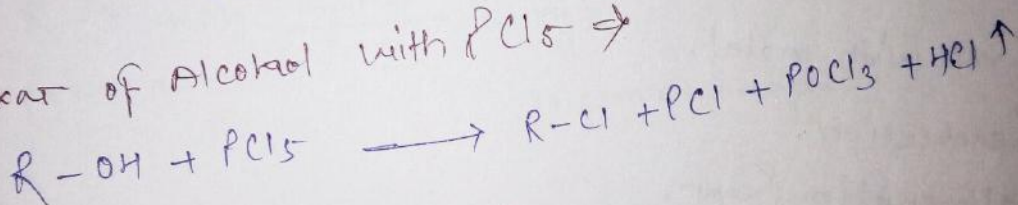 of Alcohol with PCl5 ⇒
R-OH + PCl5 ⟶ R-Cl + PCl + POCl3 + HCl ↑